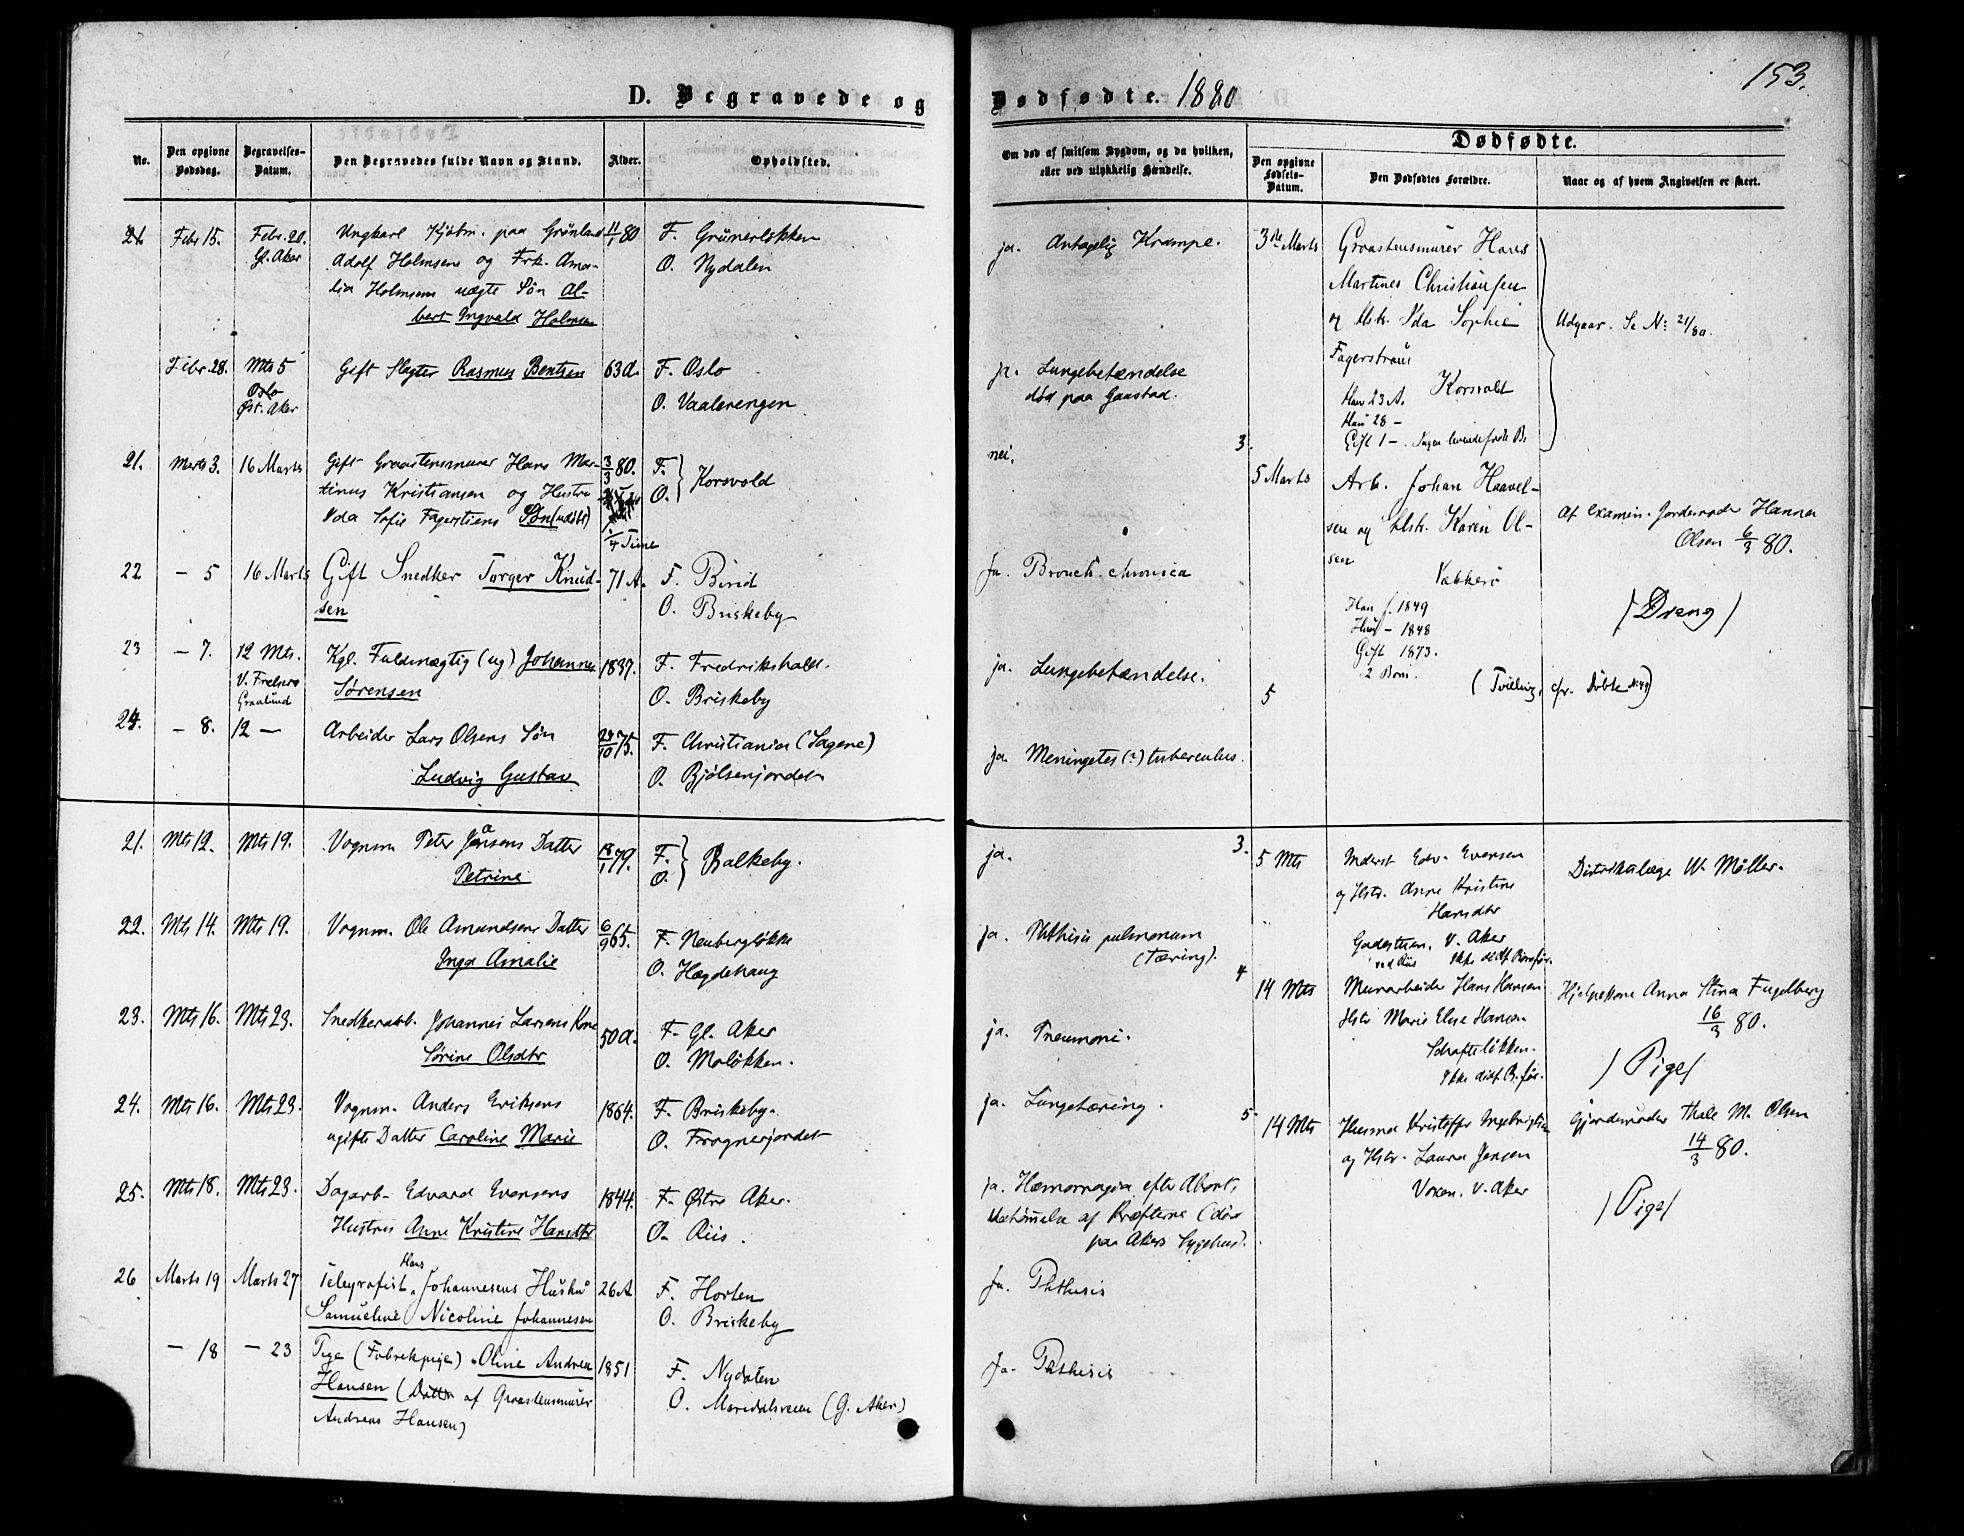 153.
D. Begravede og Dødfødte. 1880
No.
Den opgivne Dødsdag.
Begravelses-Datum.
Den Begravedes fulde Navn og Stand.
Alder.
Opholdsted.
Om død af smitsom Sygdom, og da hvilken, eller ved ulykkelig Hændelse.
Dødfødte.
Den opgivne Fødsels-Datum.
Den Dødfødtes Forældre.
Naar og af hvem Angivelsen er skeet.
21. Febr 15. Febr. 20. Ungkarl Kjøbm. paa Grønland 11/1 80 F. Grünerløkken
Gl. Aker Adolf Holmsens og Frk. Ama- O. Nydalen
lia Holmsens uægte Søn Al-
bert Ingvald Holmsen
Febr 28. Mts 5 Gift Slagter Rasmus Bentsen 63 A. F. Oslo
Oslo O. Vaalerengen
Øst. Aker
21. Marts 3. 16 Marts Gift Graastensmurer Hans Mar- 3/3 80. F. } Korsvold
tinus Kristiansen og Hustru O.
Ida Sofie Fagerstiens Søn (udøbt)
1/4 Time
22 – 5 16 Marts Gift Snedker Torger Knud- 71 A. F. Birid
sen O. Briskeby
23 – 7. 12 Mts. Kgl. Fuldmægtig (ug) Johannes 1837. F. Fredrikshald.
V. Frelsers Sørensen O. Briskeby
Gravlund
24. – 8. 12 – Arbeider Lars Olsens Søn 29/10 75. F. Christiania (Sagene)
Ludvig Gustav O. Bjølsenjordet
21. Mts 12. Mts 19. Vognm. Peter Jansens Datter 18/1 79. F. } Balkeby.
Petrine O.
22. Mts 14. Mts 19. Vognm. Ole Amundsens Datter 6/9 65. F. Neubergløkke
Inga Amalie O. Hægdehaug
23. Mts 16. Mts 23. Snedkerarb. Johannes Larsens Kone 50 A. F. Gl. Aker
Sørine Olsdtr O. Moløkken.
24. Mts 16. Mts 23. Vognm. Anders Eriksens 1864. F. Briskeby.
ugifte Datter Caroline Marie O. Frognerjordet
25. Mts 18. Mts 23. Dagarb. Edvard Evensens 1844. F. Østre Aker.
Hustru Anne Kristine Hansdtr O. Riis.
26 Marts 19 Marts 27 Telegrafist Hans Johannesens Hustru 26 A F. Horten
Samueline Nicoline Johannesen O. Briskeby
– 18 – 23 Pige (Fabrikpige) Oline Andrea 1851 F. Nydalen
Hansen (Datter af Graastensmurer O. Maridalsveien (G. Aker)
Andreas Hansen)
ja. Antagelig Krampe.
ja. Lungebetændelse
død paa Gaustad.
nei.
Ja. Bronch. chronica
ja. Lungebetændelse.
ja. Meningetes (?) tuberculus.
ja.
ja. Phthisis pulmonum
(Tæring).
ja. Pneumoni.
ja. Lungetæring.
ja. Hæmorragia efter Abort,
Udtømmelse af Kræfterne (død
paa Akers Sygehus).
Ja. Phthisis
Ja. Phthisis
3de Marts Graastensmurer Hans
Martines Christiansen
og Hstr. Ida Sophie
Fagerstrøm
Korsvold
Han 23 A.
Hun 28 –
Gift 1 –. Ingen levendefødte B.
Udgaar. Se N: 21/80.
3. 5 Marts Arb. Johan Haavel-
sen og Hstr. Karen Ol-
sen
Vækkerø
Han f. 1849
Hun – 1848
Gift 1873.
2 Børn.
Af examin. Jordemoder Hanna
Olsen 6/3 80.
(Dreng)
5 (Tvilling, cfr. Døbte N. 49)
3. 5 Mts Inderst Edv. Evensen
og Hstr. Anne Kristine
Hansdtr
V. Aker
ved Riis
Distriktslæge W. Møller.
4 14 Mts Murarbeider Hans Hansen
Hstr Marie Else Hansen
Schafteløkken.
Hjelpekone Anna Stina Fugelberg
16/3 80.
(Pige)
5 14 Mts Husmd Kristoffer Ingebrigtsen
og Hstr. Laura Jensen
Voxen. V. Aker
Gjordemoder Thale M. Olsen
14/3 80.
(Pige)